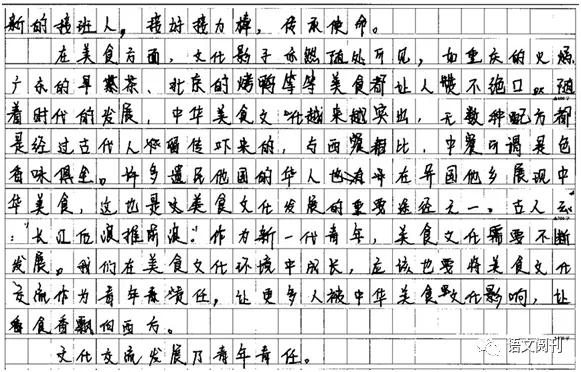 新的接班人，接好接力棒，传承使命。
在美食方面，文化影子亦然随处可见，如重庆的火锅
广东的早茶、北京的烤鸭等等美食都让人赞不绝口。随
着时代的发展，中华美食文化越来越突出，无数种配方都
是经过古代人保留传下来的，与西餐相比，中餐可谓是色
香味俱全。许多遗居他国的华人也在异国他乡展现中
华美食，这也是美食文化发展的重要途经之一。古人云
：“长江后浪推前浪”。作为新一代青年，美食文化需要不断
发展。我们在美食文化环境中成长，应该也要将美食文化
交流作为青年责任，让更多人被中华美食文化影响，让
香食香飘向西方。
文化交流发展乃青年责任。
语文阅刊